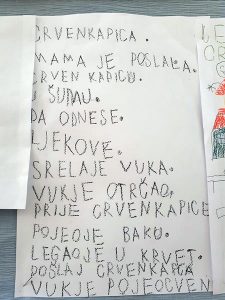 CRVENKAPICA.
MAMA JE POSLALA.
CRVEN KAPICU.
U ŠUMU.
DA ODNESE.
LJEKOVE.
SRELAJE VUKA.
VUKJE OTRČAO.
PRIJE CRVENKAPICE
POJEOJE BAKU.
LEGAOJE U KRVET.
POSLAJ CRVENKAPICA
VUKJE POJEOCVEN